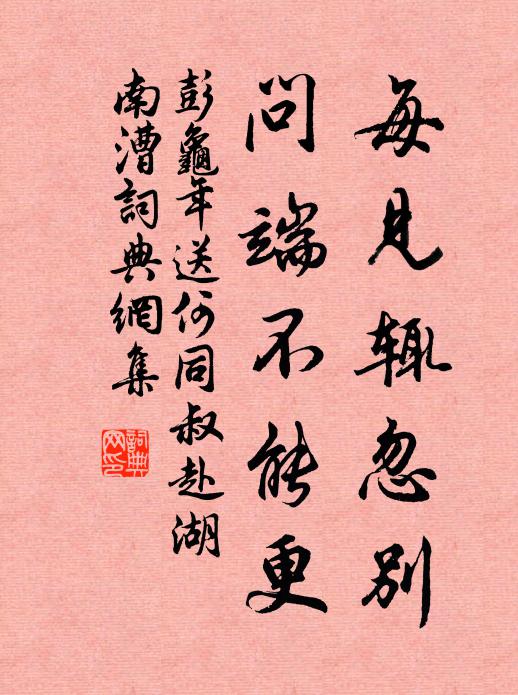 每見輒忽別
問端不能更
彭龜年送何同叔赴湖
南漕詞典網集
詞典
网印